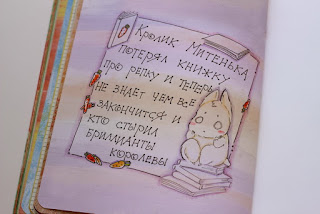 Кролик Митенька
потерял книжку
про репку и теперь
не знает чем всё
закончится и
кто стырил
бриллианты
королевы